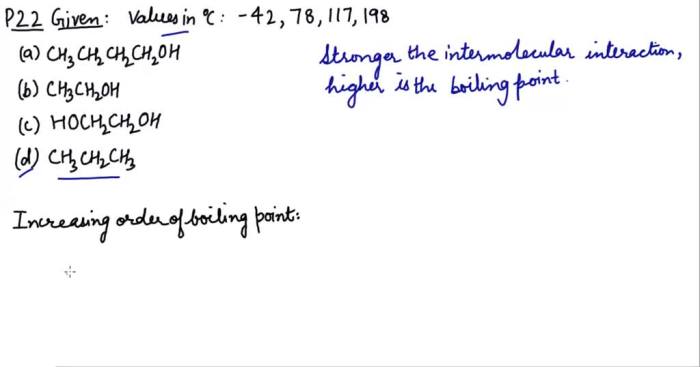 P22 Given: Values in °C: -42, 78, 117, 198
(a) CH₃CH₂CH₂CH₂OH
(b) CH₃CH₂OH
(c) HOCH₂CH₂OH
(d) CH₃CH₂CH₃
Stronger the intermolecular interaction,
higher is the boiling point.
Increasing order of boiling point: